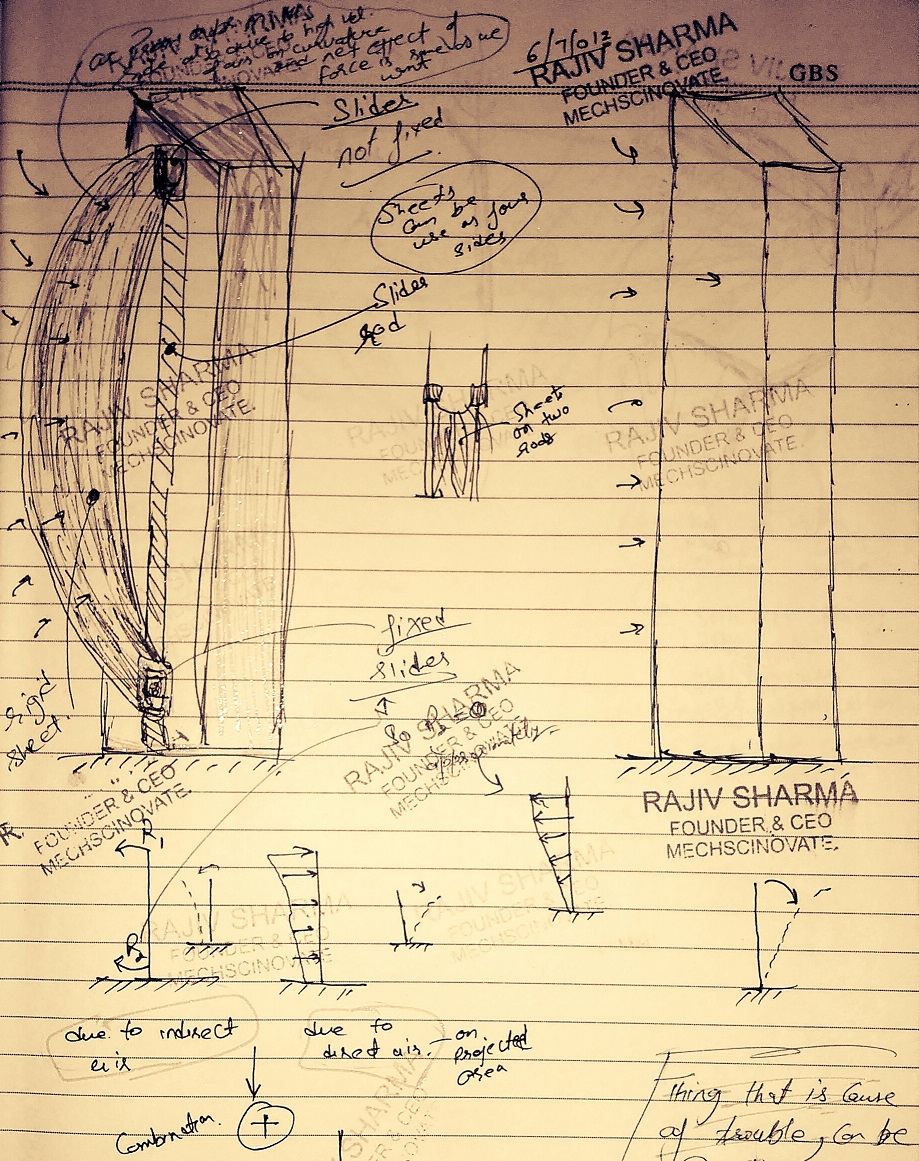 6/7/012
RAJIV SHARMA
FOUNDER & CEO
MECHSCINOVATE.
GBS
due to high vel.
curvature
and net effect of
force is same as we
want
Sliders
not fixed
Sheets
can be
use as four
sides
Slider
rod
RAJIV SHARMA
FOUNDER & CEO
MECHSCINOVATE.
Sheets
on two
rods
RAJIV SHARMA
FOUNDER & CEO
MECHSCINOVATE.
RAJIV SHARMA
FOUNDER & CEO
MECHSCINOVATE.
fixed
sliders
rigid
sheet
RAJIV SHARMA
FOUNDER & CEO
MECHSCINOVATE.
approximately
FOUNDER & CEO
MECHSCINOVATE.
RAJIV SHARMA
FOUNDER & CEO
MECHSCINOVATE.
R1
R2
RAJIV SHARMA
FOUNDER & CEO
MECHSCINOVATE.
RAJIV SHARMA
FOUNDER & CEO
MECHSCINOVATE.
due to indirect
air
due to
direct air. - on
projected
area
Combination.
+
Thing that is cause
of trouble, can be